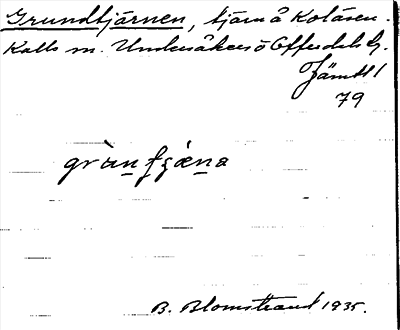 Grundtjärnen, tjärn å Kolåsen.
Kalls sn. Undersåkers o Offerdals tg.
Jämtl
79
B. Blomstrand 1935.